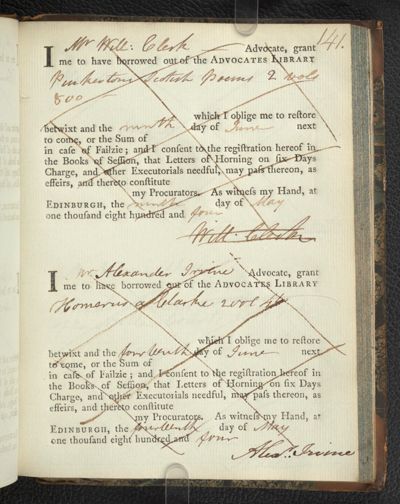 141.
I Mr Will: Clerk Advocate, grant
me to have borrowed out of the ADVOCATES LIBRARY
Pinkertons Scotish Poems 2 vols
8oo
which I oblige me to reſtore
betwixt and the ninth day of June next
to come, or the Sum of
in caſe of Failzie; and I conſent to the regiſtration hereof in
the Books of Seſſion, that Letters of Horning on ſix Days
Charge, and other Executorials needful, may paſs thereon, as
effeirs, and thereto conſtitute
my Procurators. As witneſs my Hand, at
EDINBURGH, the ninth day of May
one thouſand eight hundred and four
Will: Clerk
I Mr Alexander Irvine Advocate, grant
me to have borrowed out of the ADVOCATES LIBRARY
Homerus a Clarke 2 vol 4to
which I oblige me to reſtore
betwixt and the fourteenth day of June next
to come, or the Sum of
in caſe of Failzie; and I conſent to the regiſtration hereof in
the Books of Seſſion, that Letters of Horning on ſix Days
Charge, and other Executorials needful, may paſs thereon, as
effeirs, and thereto conſtitute
my Procurators. As witneſs my Hand, at
EDINBURGH, the fourteenth day of May
one thouſand eight hundred and four
Alexr. Irvine